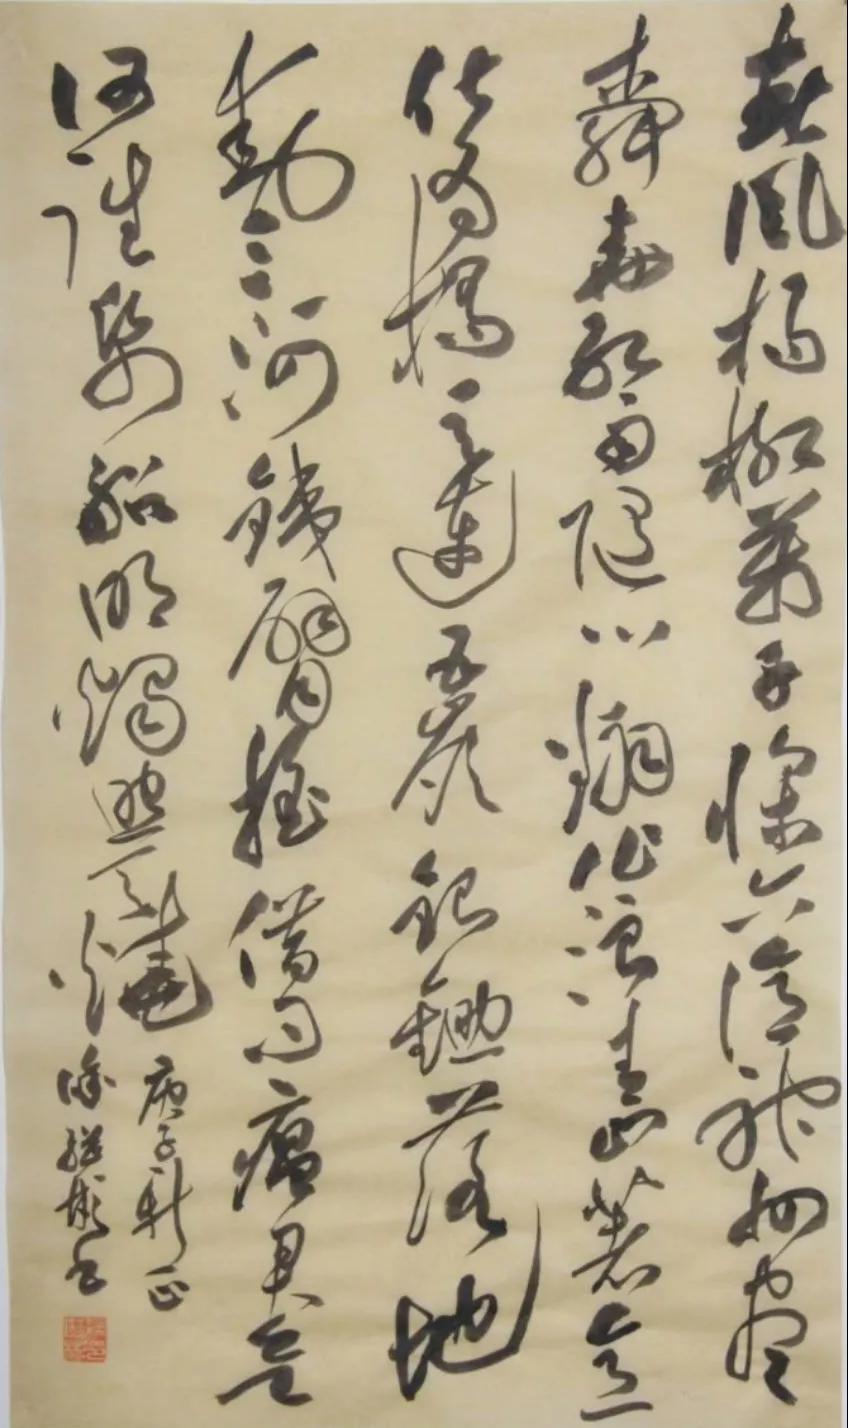 春風楊柳萬千條六億神州盡
舜堯紅雨隨心翻作浪青山著意
化為橋天連五嶺銀鋤落地
動三河銕臂搖借問瘟君欲
何往紙船明燭照天燒
庚子新正
徐書